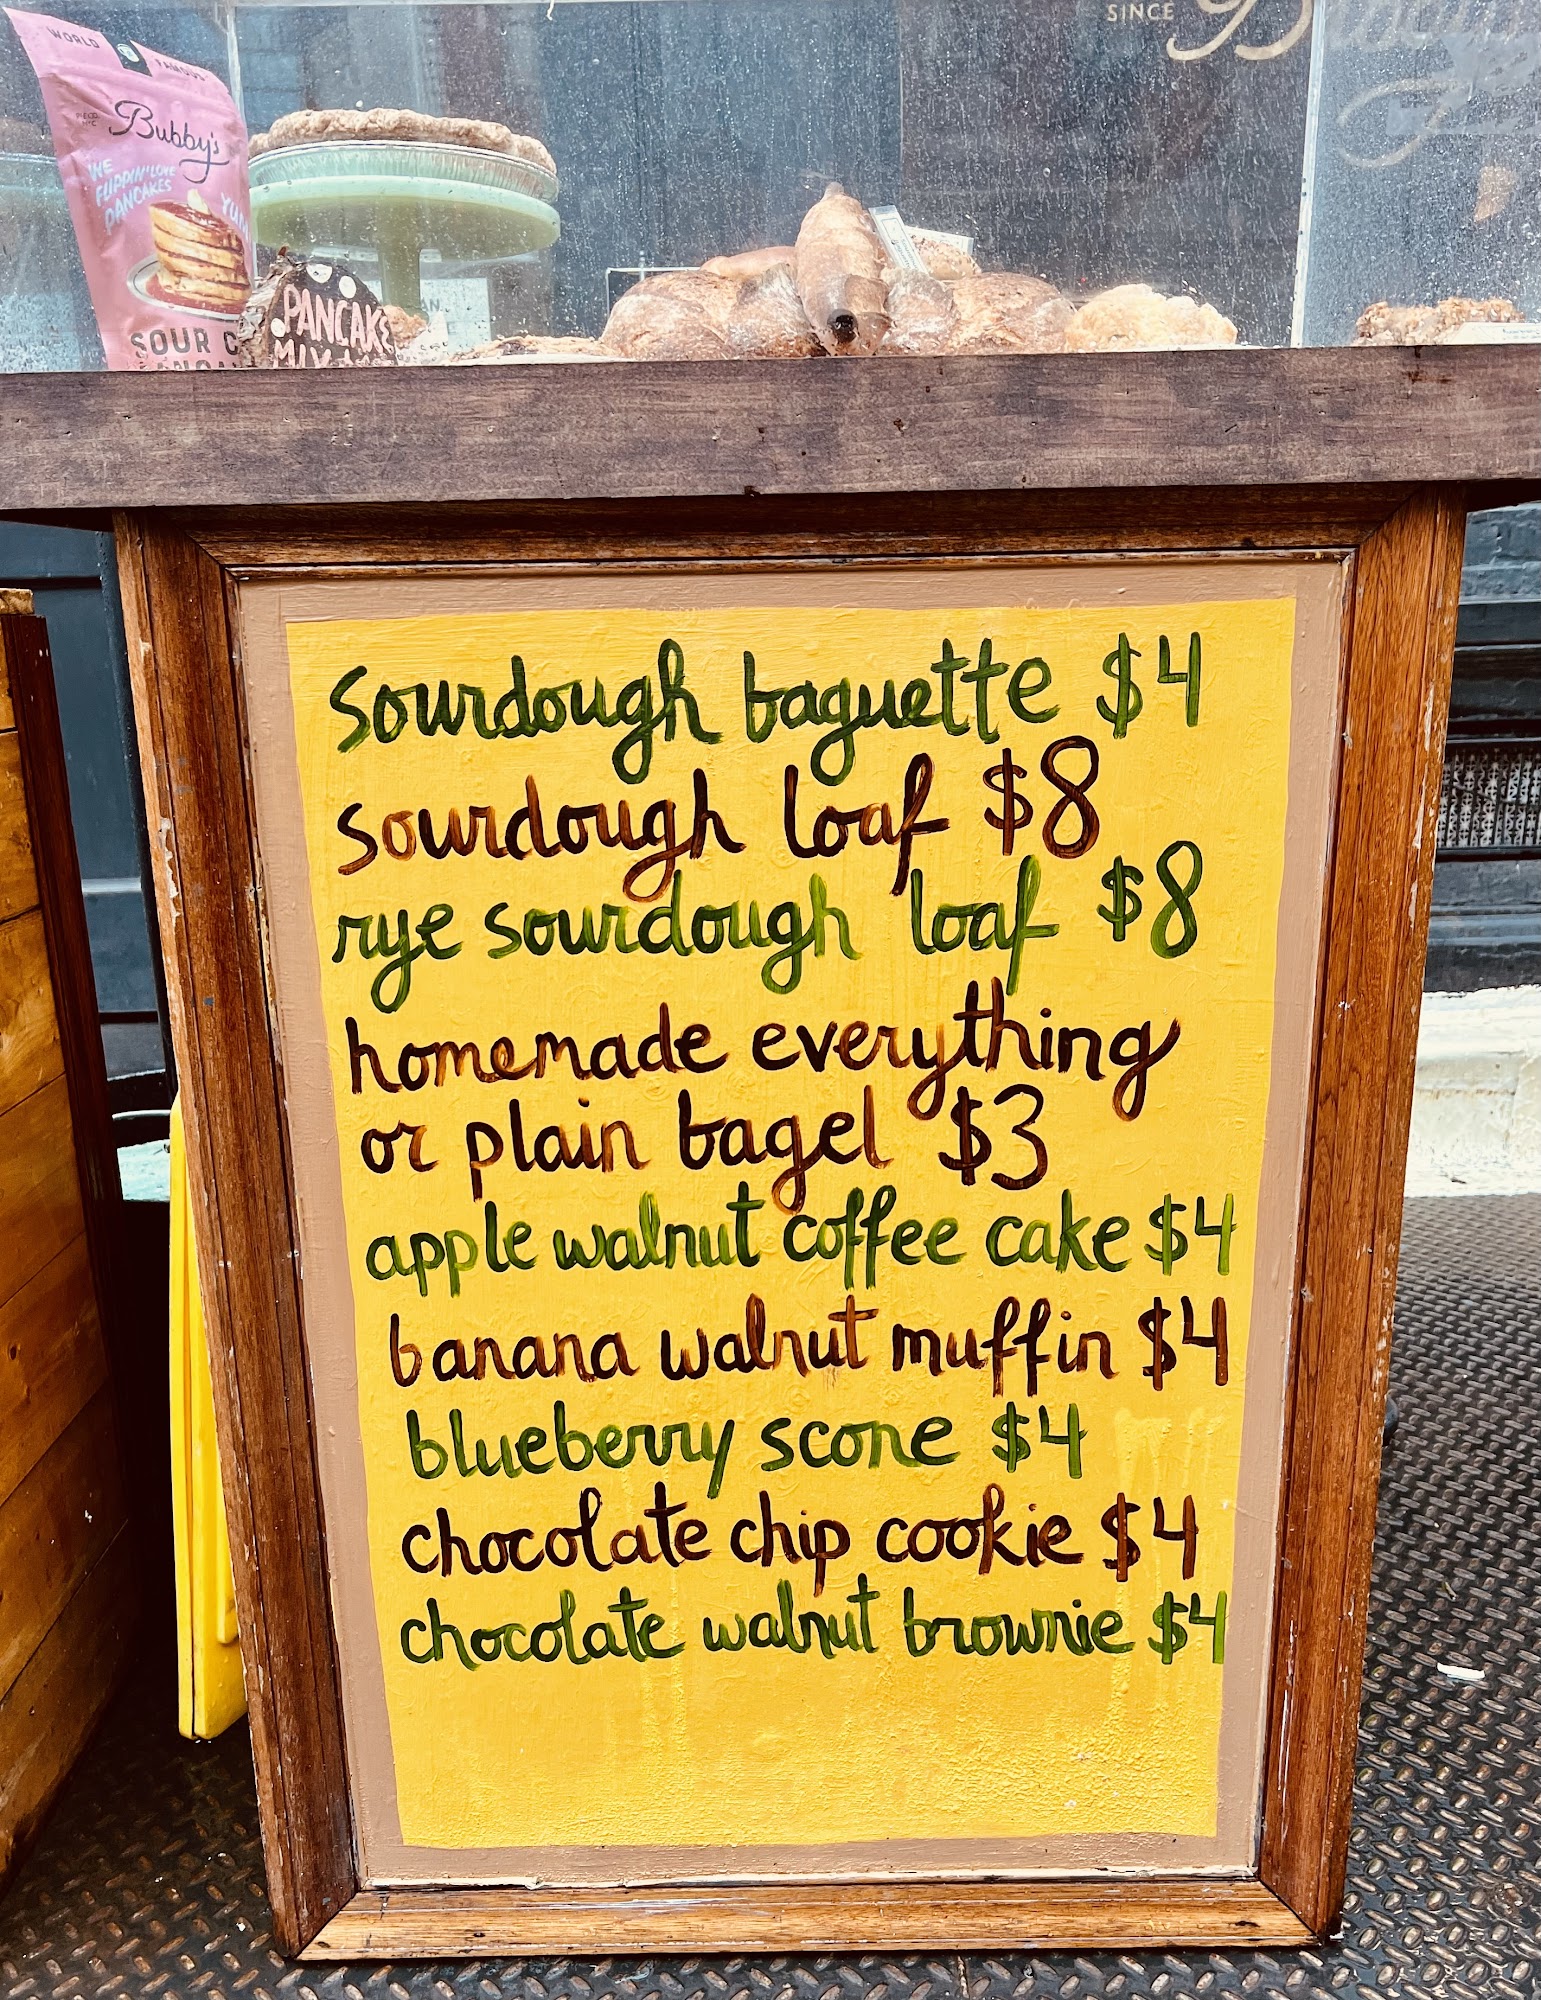 SINCE
WORLD FAMOUS
Bubby's
WE
FLIPPIN' LOVE
PANCAKES
SOUR
PANCAKE
MIX
sourdough baguette $4
sourdough loaf $8
rye sourdough loaf $8
homemade everything
or plain bagel $3
apple walnut coffee cake $4
banana walnut muffin $4
blueberry scone $4
chocolate chip cookie $4
chocolate walnut brownie $4